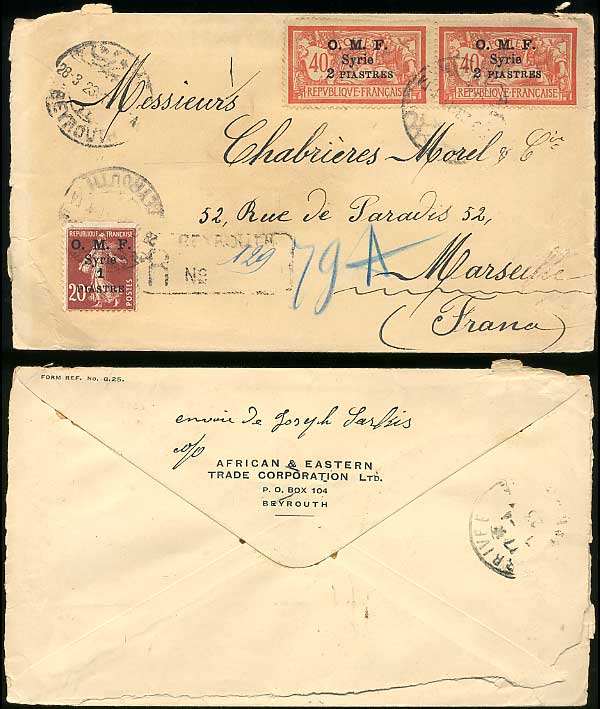 O. M. F. O. M. F.
Syrie Syrie
40 2 PIASTRES 40 2 PIASTRES
RÉPUBLIQUE FRANÇAISE RÉPUBLIQUE FRANÇAISE
28-3 23
BEYROUTH
Messieurs
Chabrières Morel & Cie
52, Rue de Paradis 52,
BEYROUTH
O. M. F.
Syrie
1
PIASTRE
20c POSTES
R No 129
79A
Marseille
(France)
FORM REF. No. G.25.
envoie de Joseph Sarkis
c/o
AFRICAN & EASTERN
TRADE CORPORATION LTD.
P. O. BOX 104
BEYROUTH